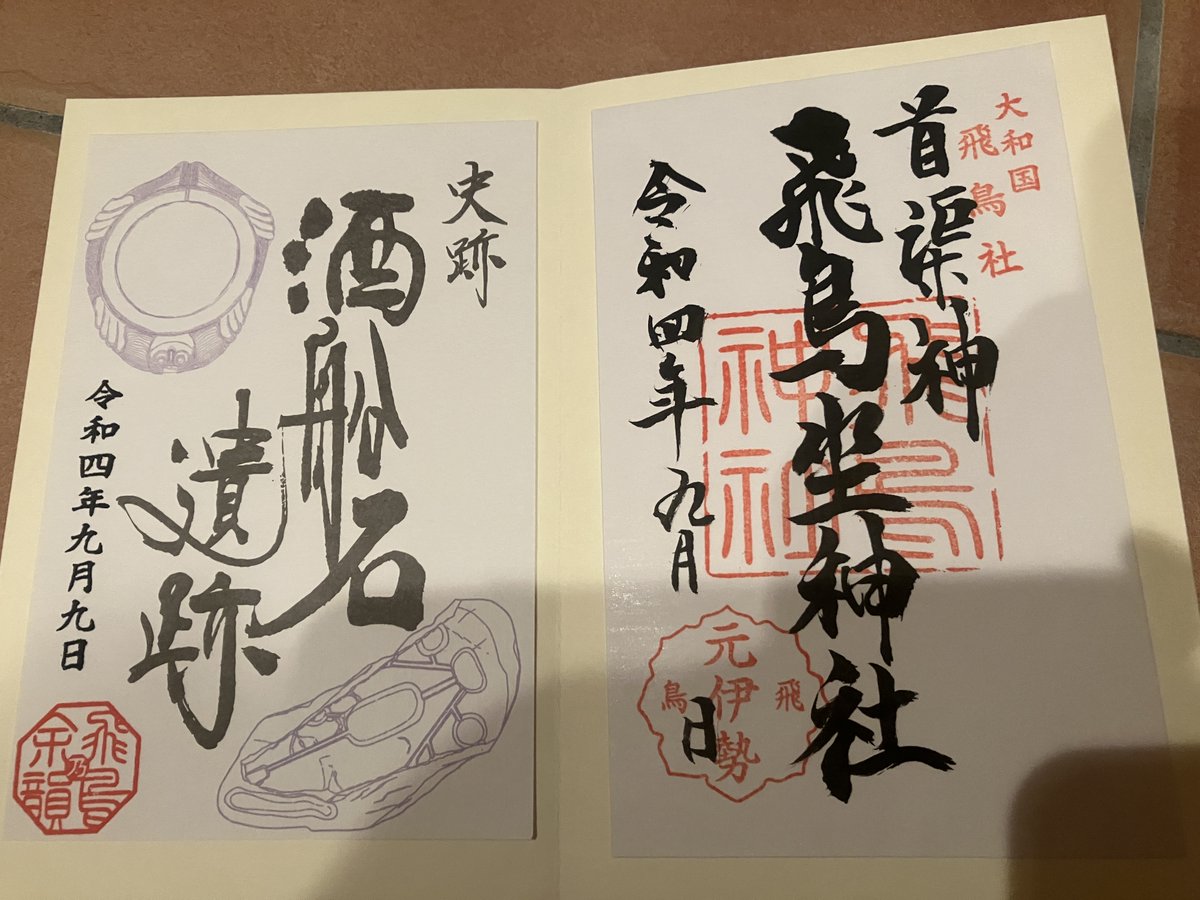 大和国
飛鳥社
首渠神
飛鳥坐神社
令和四年九月 日
元伊勢
飛鳥
史跡
酒船石
遺跡
令和四年九月九日
飛鳥乃余韻